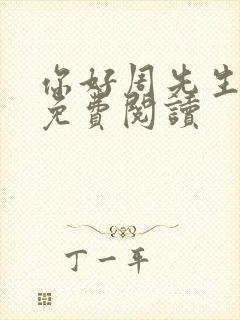 你好周先生
免費閱讀
丁一平